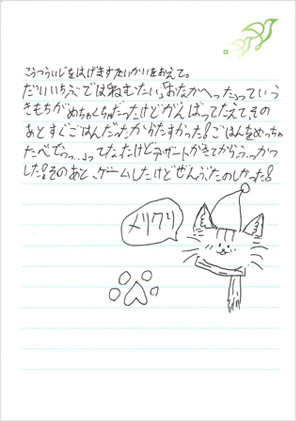 こうつういじをはげますたいかいをおえて。
だいいちぶではねむたい、おなかへったっていう
きもちがめちゃくちゃだったけどがんばってたえてその
あとすぐごはんだったからたすかった!ごはんをめっちゃ
たべてうっ…ってなったけどデザートがきてからうっかつ
した!そのあと、ゲームしたけどぜんぶたのしかった!
メリクリ